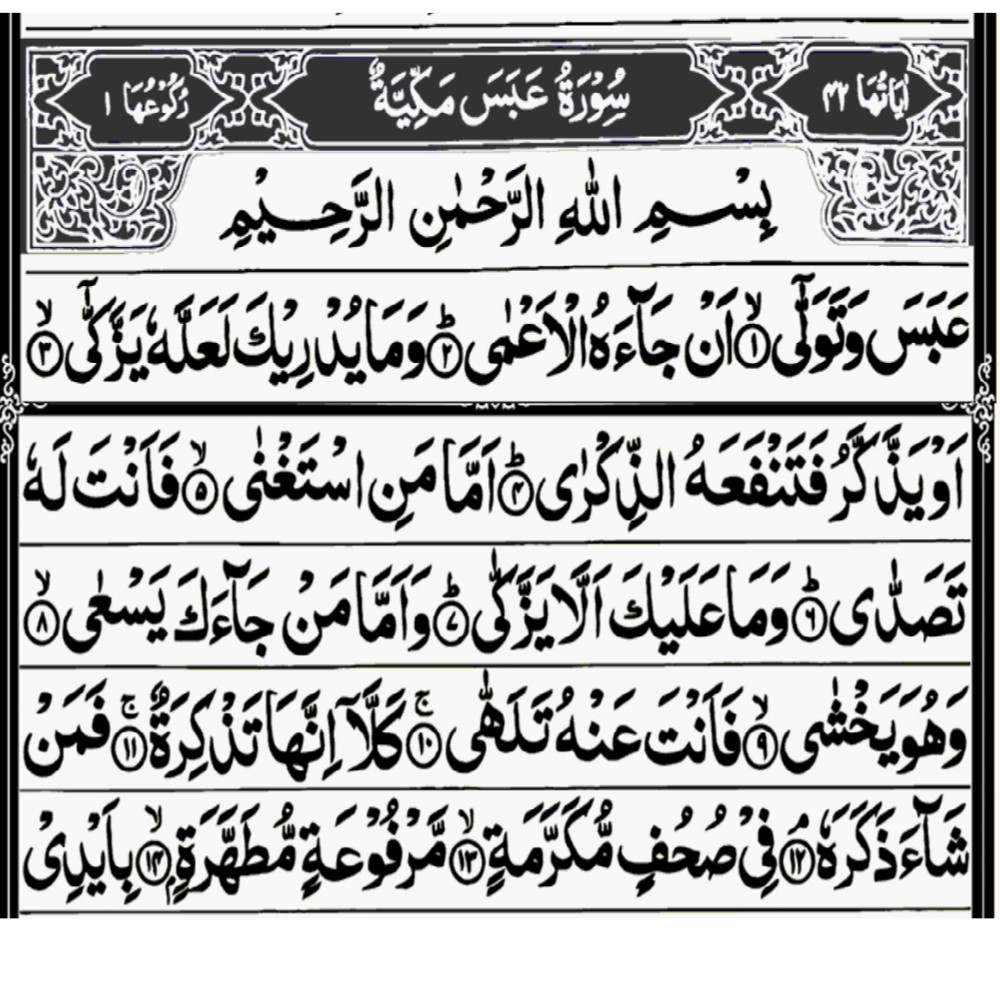 اٰيَاتُهَا ۴۲ سُوْرَةُ عَبَسَ مَكِّيَّةٌ رُكُوْعُهَا ۱
بِسْمِ اللّٰهِ الرَّحْمٰنِ الرَّحِيْمِ
عَبَسَ وَتَوَلّٰٓى ۙ﴿۱﴾ اَنْ جَآءَهُ الْاَعْمٰى ؕ﴿۲﴾ وَمَا يُدْرِيْكَ لَعَلَّهٗ يَزَّكّٰٓى ۙ﴿۳﴾
اَوْ يَذَّكَّرُ فَتَنْفَعَهُ الذِّكْرٰى ؕ﴿۴﴾ اَمَّا مَنِ اسْتَغْنٰى ۙ﴿۵﴾ فَاَنْتَ لَهٗ
تَصَدّٰى ؕ﴿۶﴾ وَمَا عَلَيْكَ اَلَّا يَزَّكّٰى ؕ﴿۷﴾ وَاَمَّا مَنْ جَآءَكَ يَسْعٰى ۙ﴿۸﴾
وَهُوَ يَخْشٰى ۙ﴿۹﴾ فَاَنْتَ عَنْهُ تَلَهّٰى ۚ﴿۱۰﴾ كَلَّاۤ اِنَّهَا تَذْكِرَةٌ ۚ﴿۱۱﴾ فَمَنْ
شَآءَ ذَكَرَهٗ ۘ﴿۱۲﴾ فِىْ صُحُفٍ مُّكَرَّمَةٍ ۙ﴿۱۳﴾ مَّرْفُوْعَةٍ مُّطَهَّرَةٍۭ ۙ﴿۱۴﴾ بِاَيْدِىْ